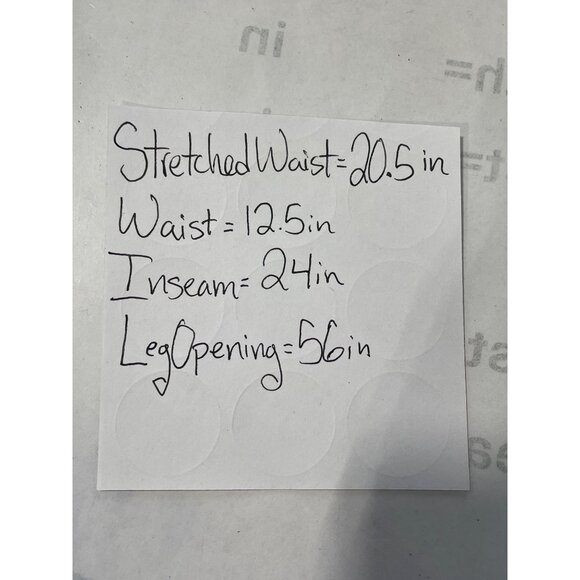 in
h=
Stretched Waist = 20.5 in
Waist = 12.5in
Inseam = 24in
Leg Opening = 56in